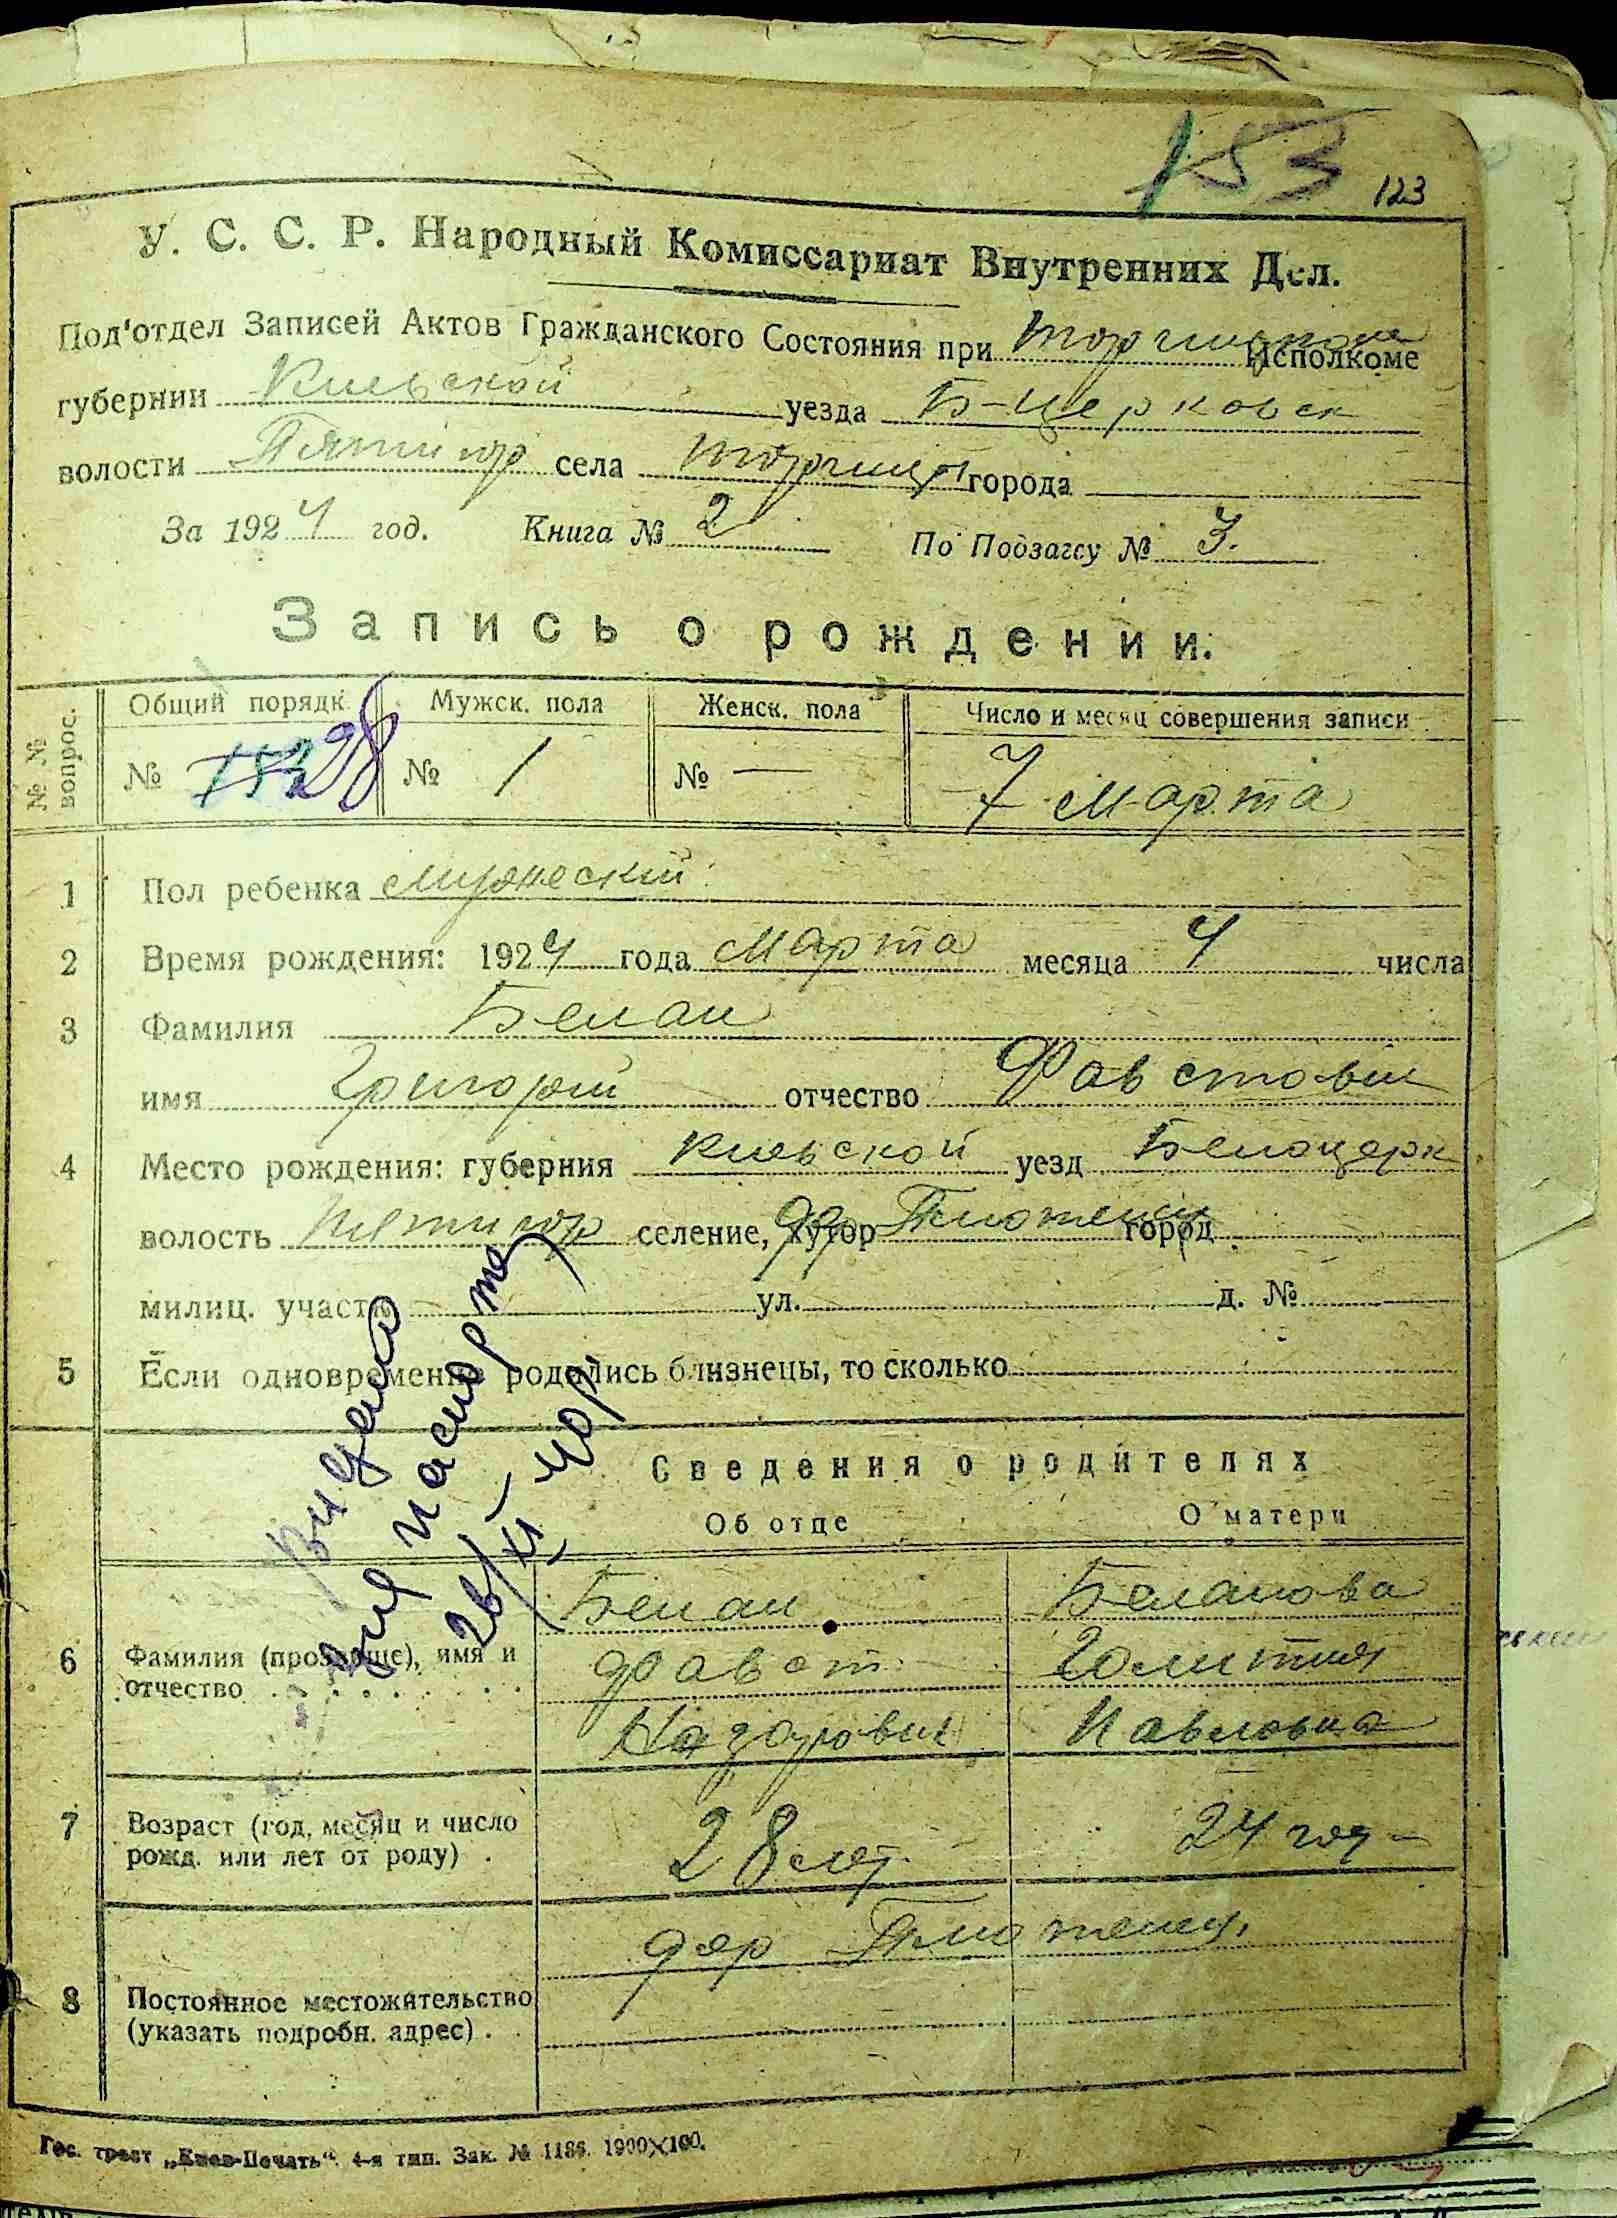 153 123
У. С. С. Р. Народный Комиссариат Внутренних Дел.
Под'отдел Записей Актов Гражданского Состояния при Исполкоме
губернии Киевской уезда Б-церковск
волости Пятигор села Торчица города
За 1924 год. Книга № 2 По Подзагсу № 3.
Запись о рождении.
№ № вопрос. Общий порядк. Мужск. пола Женск. пола Число и месяц совершения записи
№ 28 № 1 № — 7 Марта
1 Пол ребенка Мужеский
2 Время рождения: 1924 года Марта месяца 4 числа
3 Фамилия Белан
имя Григорий отчество Фавстович
4 Место рождения: губерния Киевской уезд Белоцерк
волость Пятигор селение, хутор город
милиц. участк ул. д. №
5 Если одновременно родились близнецы, то сколько
Видано
для паспорта
26/XI-40р.
Сведения о родителях
Об отце О матери
Белан Беланова
6 Фамилия (прозвище), имя и Фавст
отчество Назарович Павловна
7 Возраст (год, месяц и число 28 лет 24 год
рожд. или лет от роду)
дер
8 Постоянное местожительство
(указать подробн. адрес)
Гос. трест „Киев-Печать“ 4-я тип. Зак. № 1186. 1900×100.